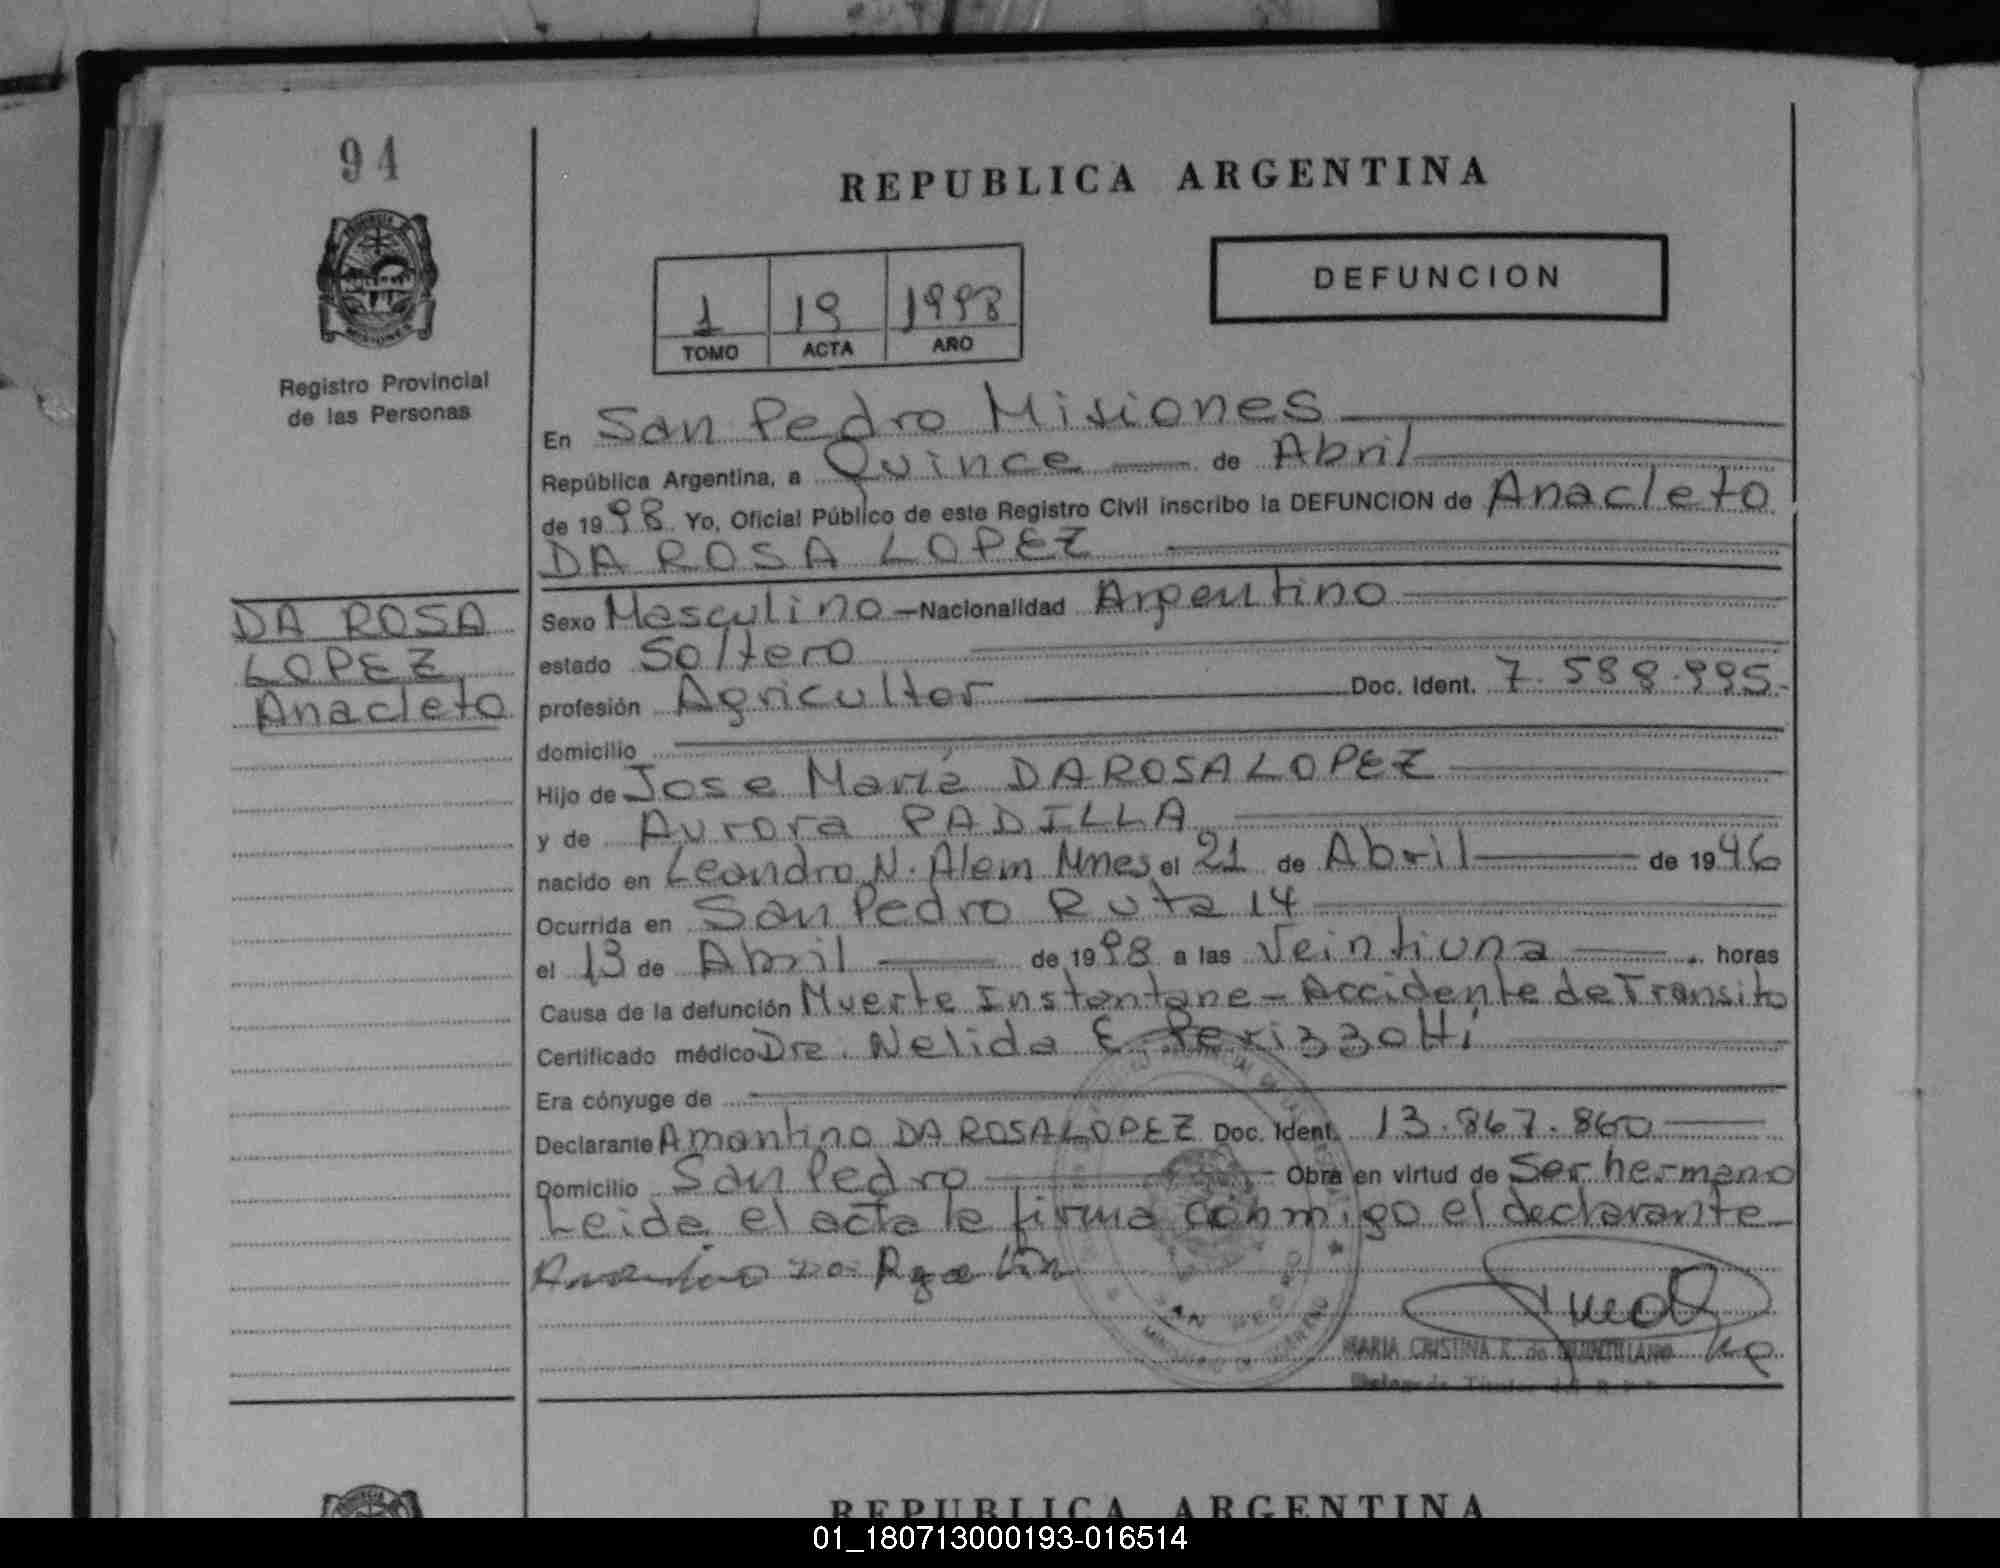 94
REPUBLICA ARGENTINA
DEFUNCION
1 19 1998
TOMO ACTA AÑO
Registro Provincial
de las Personas
En San Pedro Misiones
República Argentina, a Quince de Abril
de 1998 Yo, Oficial Público de este Registro Civil inscribo la DEFUNCION de Anacleto
DA ROSA LOPEZ
DA ROSA
LOPEZ
Anacleto
Sexo Masculino Nacionalidad Argentino
estado Soltero
profesión Agricultor Doc. Ident. 7.588.995
domicilio
Hijo de Jose María DA ROSA LOPEZ
y de Aurora PADILLA
nacido en Leandro N. Alem Mnes el 21 de Abril de 1946
Ocurrida en San Pedro Ruta 14
el 13 de Abril de 1998 a las Veintiuna horas
Causa de la defunción Muerte Instantane - Accidente de Transito
Certificado médico Dra. Nelida E. Perizzotti
Era cónyuge de
Declarante Amantino DA ROSA LOPEZ Doc. Ident. 13.867.860
Domicilio San Pedro Obra en virtud de Ser hermano
Leida el acta la firma conmigo el declarante
MARIA CRISTINA R. de QUINTILIANO
REPUBLICA ARGENTINA
01_180713000193-016514